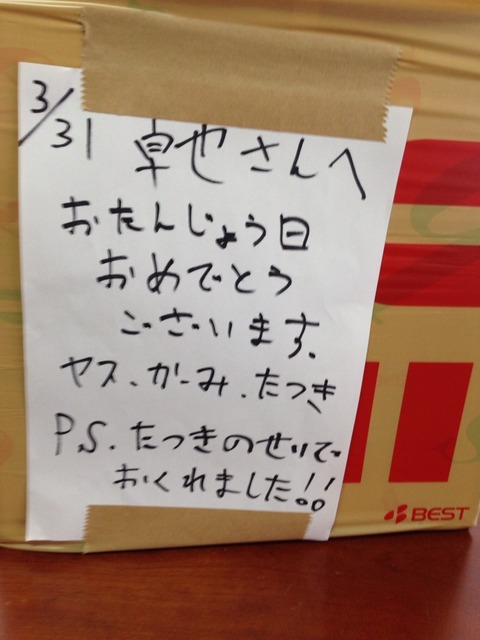 3/31 卓也さんへ
おたんじょう日
おめでとう
ございます。
ヤス、かーみ、たつき
P.S.たつきのせいで
おくれました!!
BEST